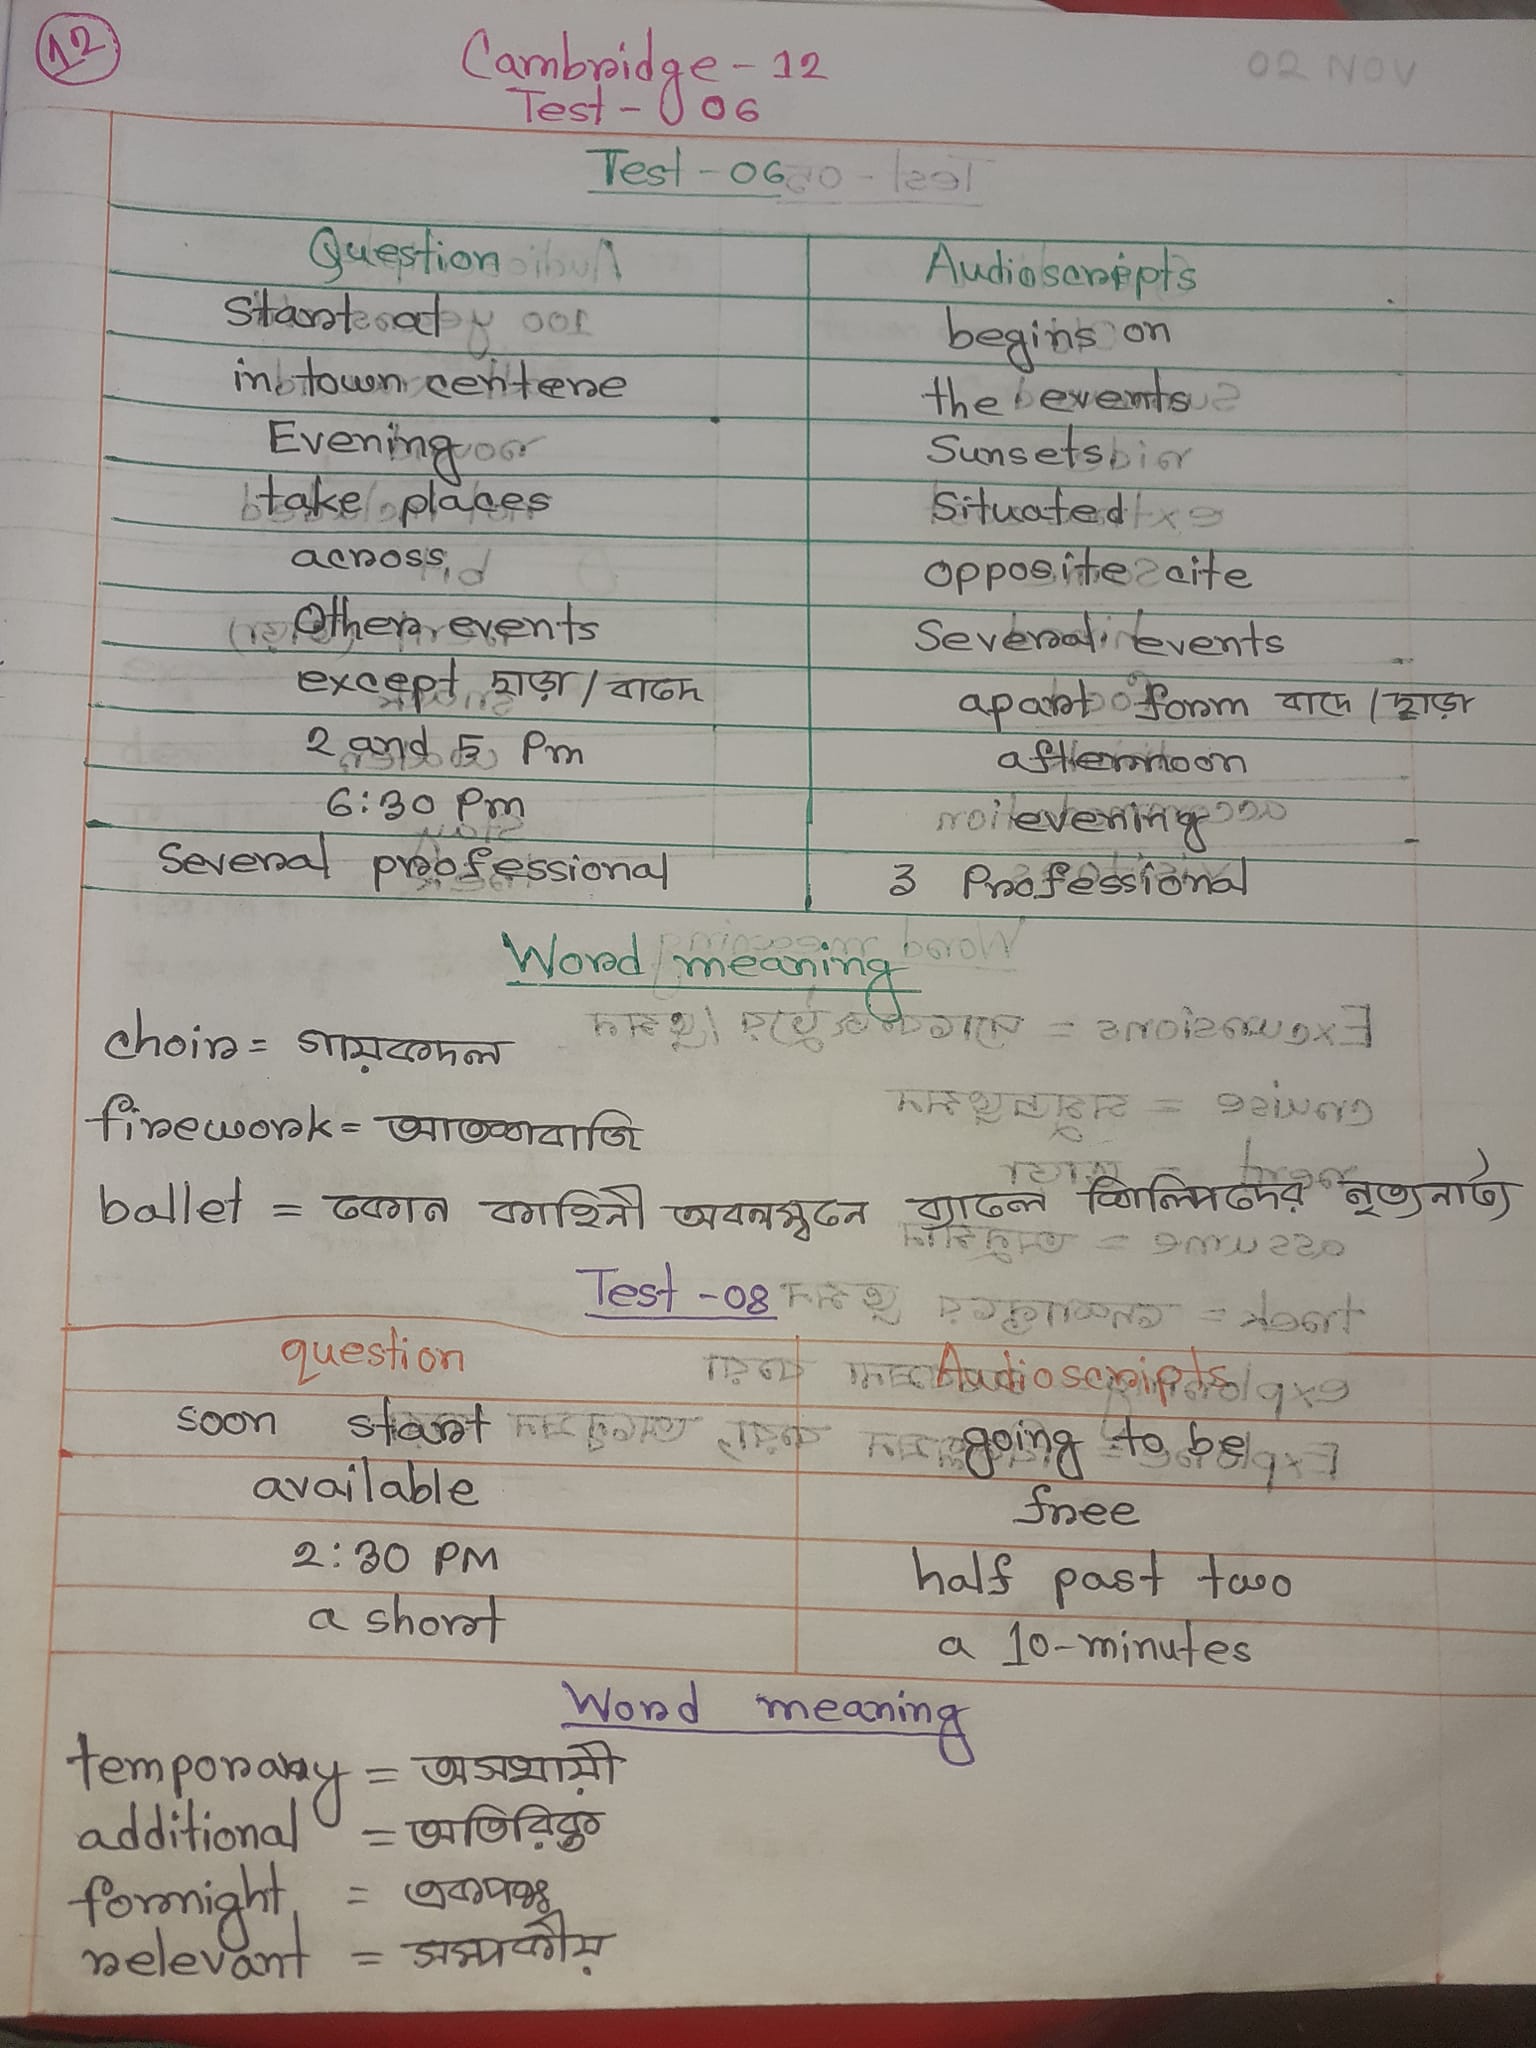 12
Cambridge - 12
02 NOV
Test - 06
Test - 06
Question Audioscripts
Start at begins on
in town centere the events
Evening Sunsets
take places Situated
across opposite cite
Other events Several events
except ছাড়া / বাদে apart form বাদে / ছাড়া
2 and 5 Pm afternoon
6:30 Pm evening
Several professional 3 Professional
Word meaning
choir = গায়কদল
firework = আতশবাজি
ballet = কোন কাহিনী অবলম্বনে ব্যালে শিল্পিদের নৃত্যনাট্য
Test - 08
question Audioscripts
soon start going to be
available free
2:30 PM half past two
a short a 10-minutes
Word meaning
temporary = অসথায়ী
additional = অতিরিক্ত
fornight = একপক্ষ
relevant = সম্পর্কীয়